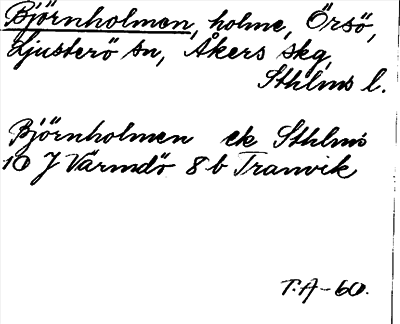 Björnholmen, holme, Örsö,
Ljusterö sn, Åkers skg,
Sthlms l.
Björnholmen ek Sthlms
10 J Värmdö 8 b Tranvik
T.A-60.